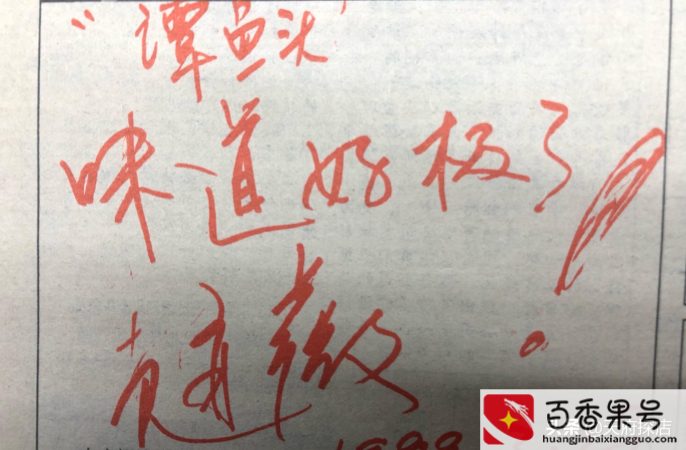 “谭鱼头”
味道好极了！
赵薇
1999
百香果号
huangjinbaixiangguo.com